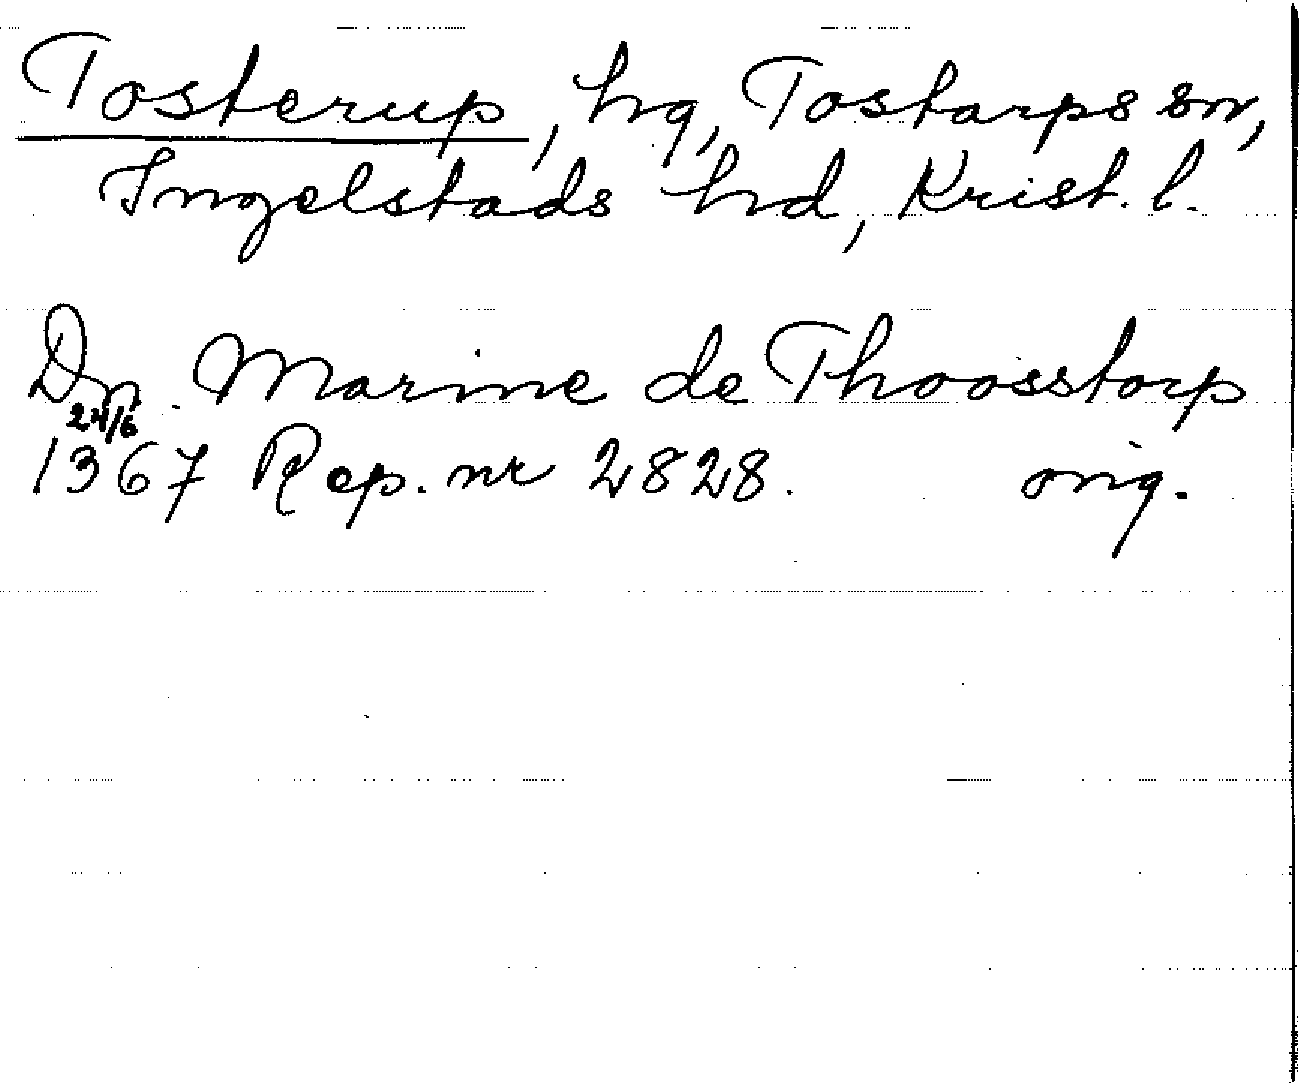 Tosterup, hg, Tostarps sn,
Ingelstads hd, Krist. l.
Dn. Marine de Thoosstorp
24/6
1367 Rep. nr 2828. orig.